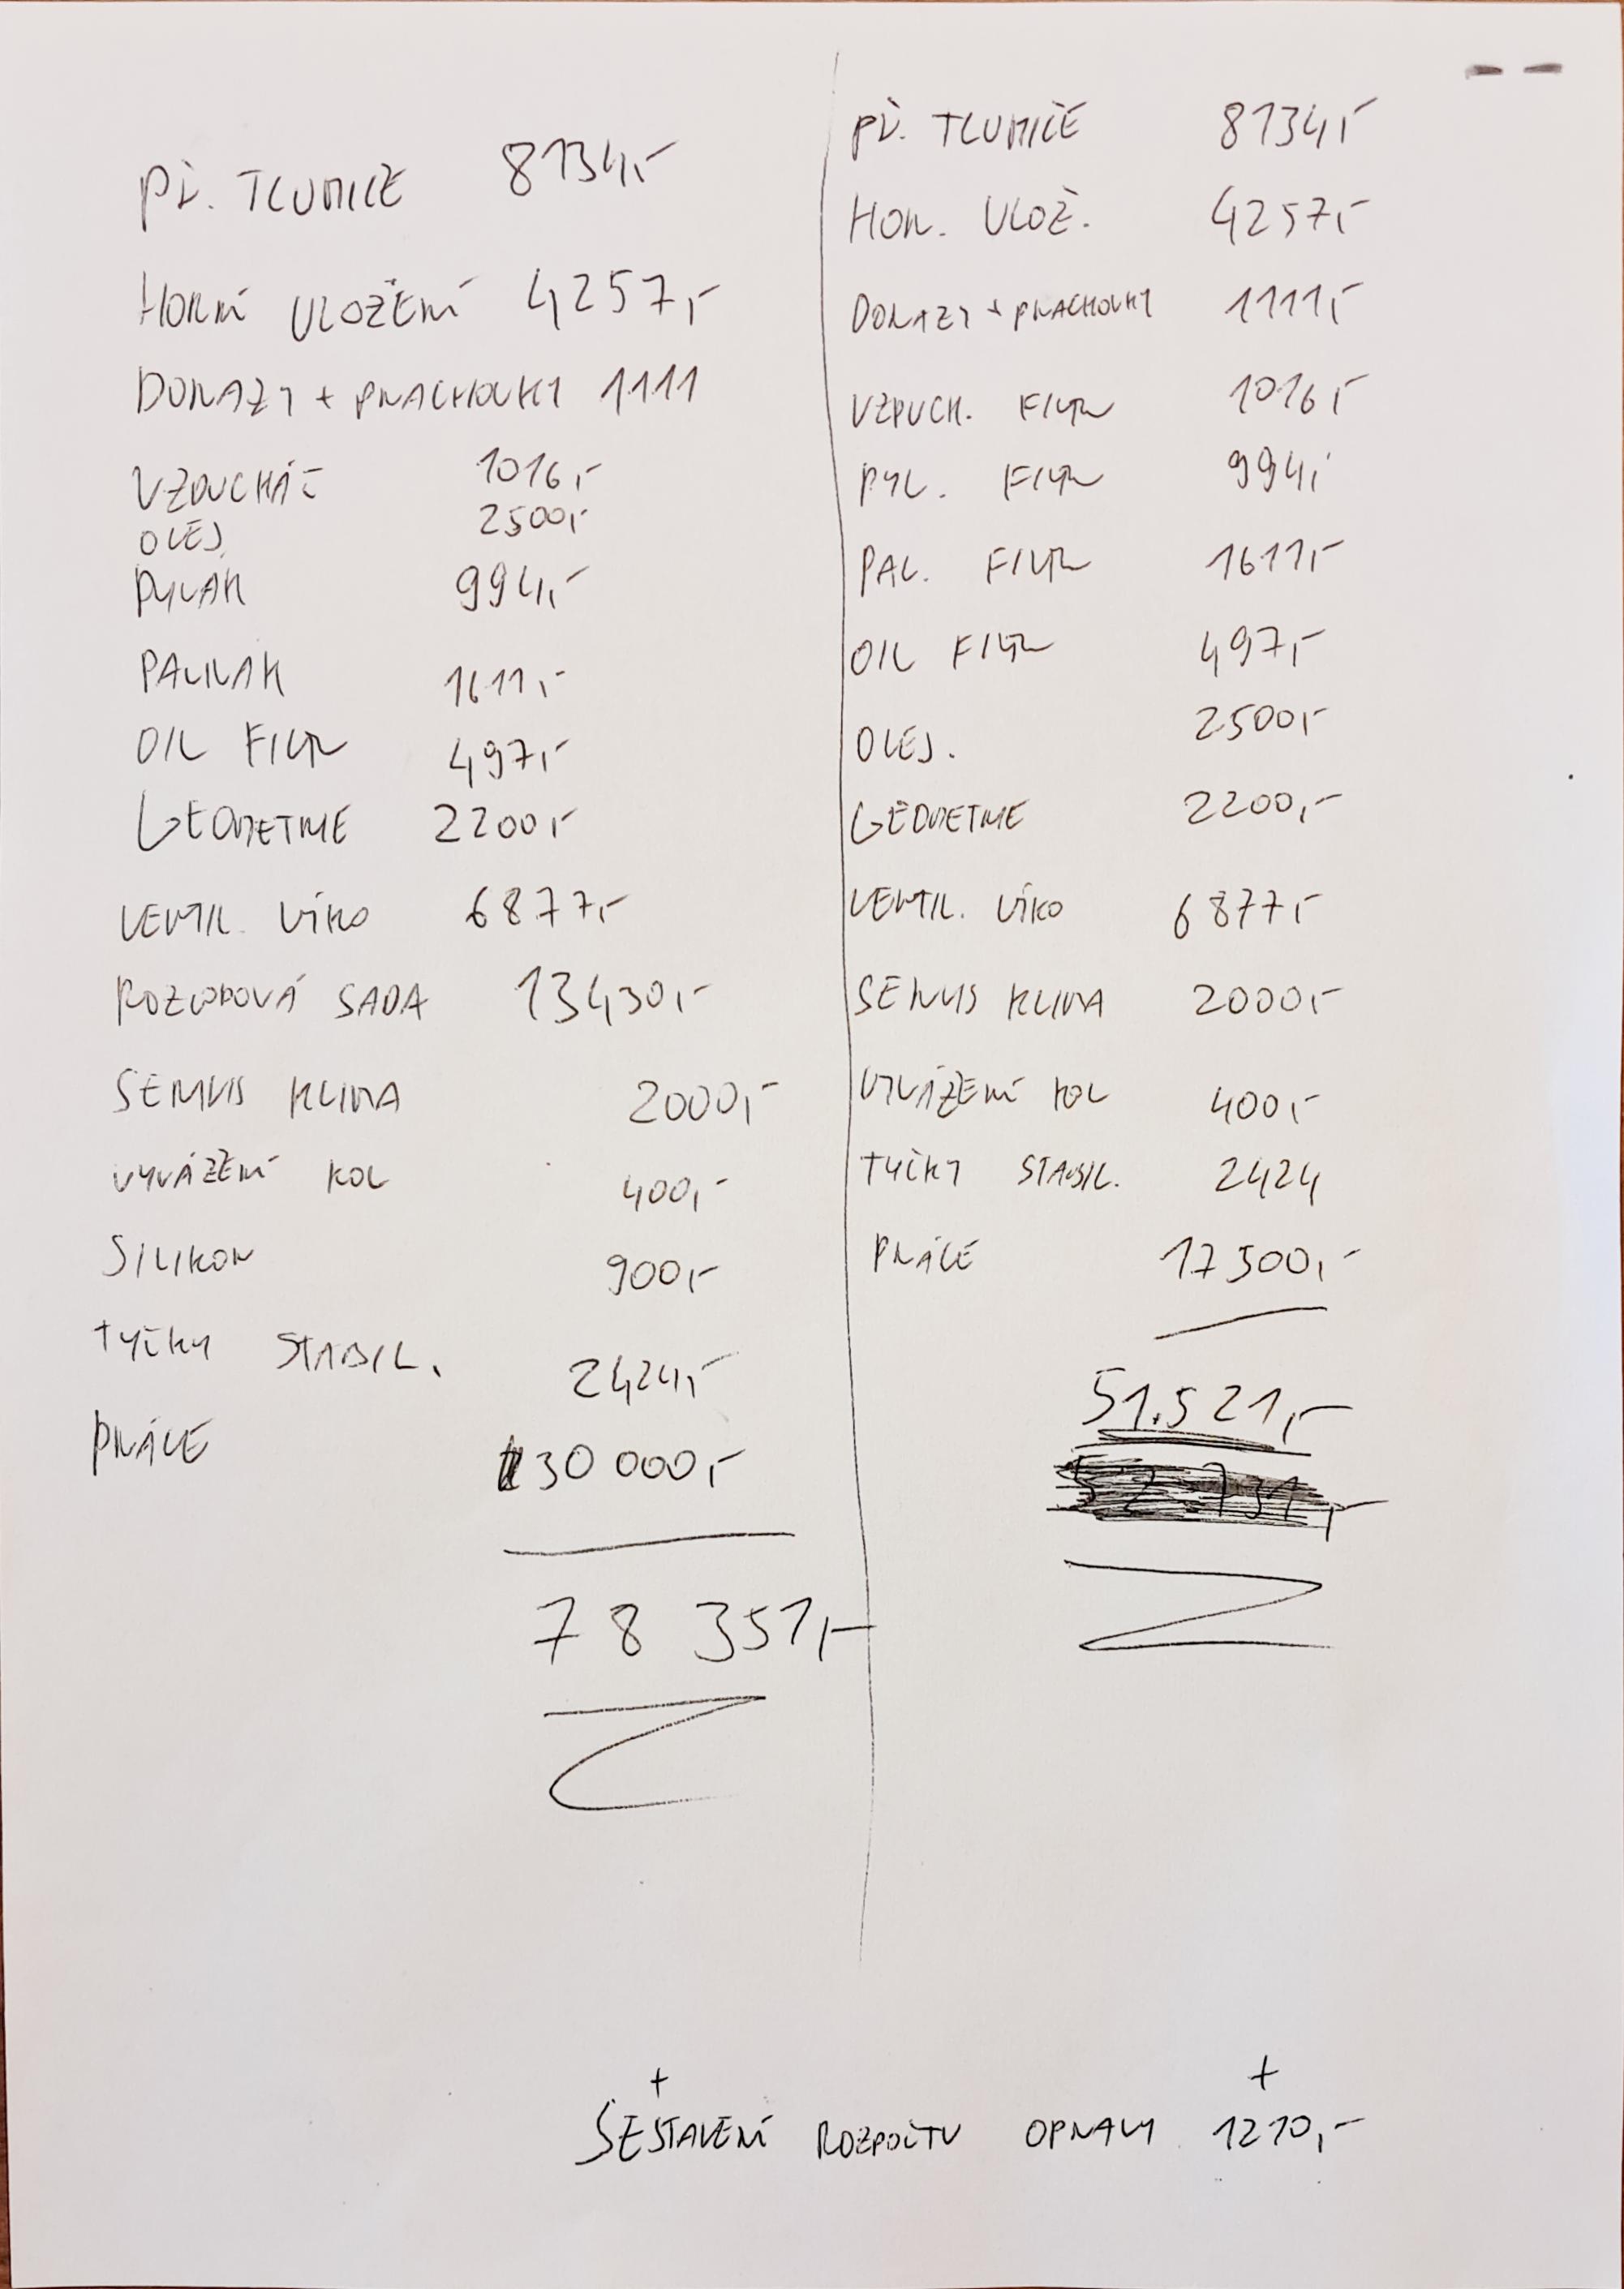 PŘ. TLUMIČE 8134,-
HORNÍ ULOŽENÍ 4257,-
DORAZY + PRACHOVKY 1111
VZDUCHÁČ 1016,-
OLEJ 2500,-
PYLÁK 994,-
PALIVÁK 1611,-
OIL FILTR 497,-
GEOMETRIE 2200,-
VENTIL. VÍKO 6877,-
ROZVODOVÁ SADA 13430,-
SERVIS KLIMA 2000,-
VYVÁŽENÍ KOL 400,-
SILIKON 900,-
TYČKY STABIL. 2424,-
PRÁCE 30 000,-
78 351,-
PŘ. TLUMIČE 8134,-
HOR. ULOŽ. 4257,-
DORAZY + PRACHOVKY 1111,-
VZDUCH. FILTR 1016,-
PYL. FILTR 994,-
PAL. FILTR 1611,-
OIL FILTR 497,-
OLEJ. 2500,-
GEOMETRIE 2200,-
VENTIL. VÍKO 6877,-
SERVIS KLIMA 2000,-
VYVÁŽENÍ KOL 400,-
TYČKY STABIL. 2424
PRÁCE 17500,-
51.521,-
+ +
SESTAVENÍ ROZPOČTU OPRAVY 1210,-